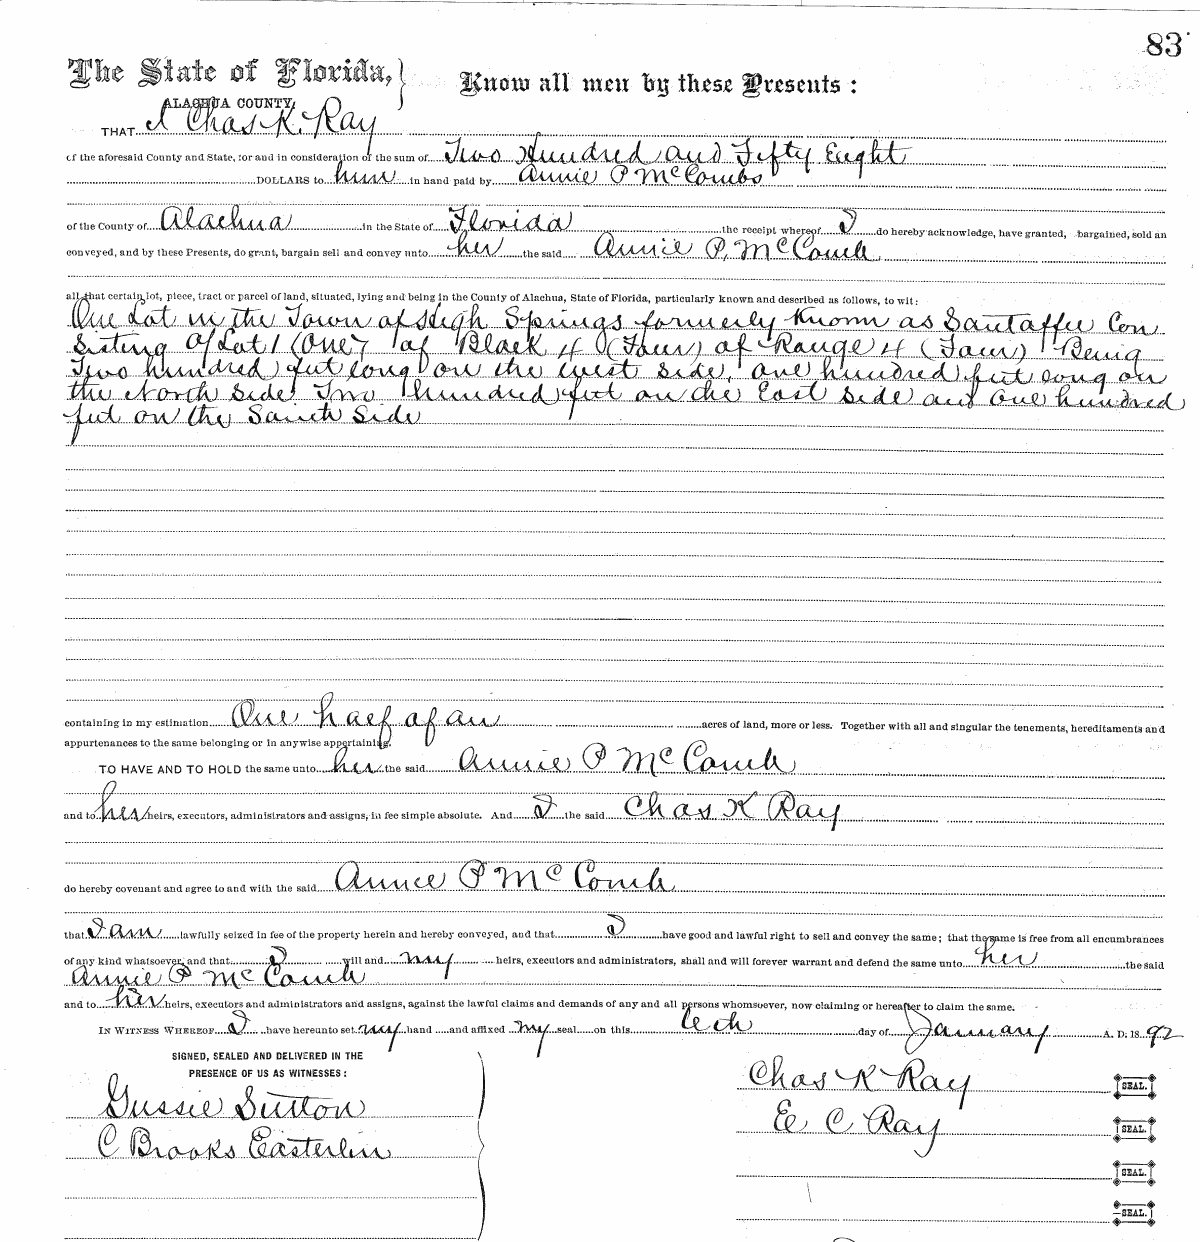 83
The State of Florida,} Know all men by these Presents:
ALACHUA COUNTY,
THAT I Chas K. Ray
of the aforesaid County and State, for and in consideration of the sum of Two Hundred and Fifty Eight
DOLLARS to him in hand paid by Annie P McCombs
of the County of Alachua in the State of Florida the receipt whereof I do hereby acknowledge, have granted, bargained, sold an
conveyed, and by these Presents, do grant, bargain sell and convey unto her the said Annie P. McComb
all that certain lot, piece, tract or parcel of land, situated, lying and being in the County of Alachua, State of Florida, particularly known and described as follows, to wit:
One Lot in the Town of High Springs formerly Known as Santaffee Con
Sisting of Lot 1 (One) of Block 4 (Four) of Range 4 (Four) Being
Two hundred feet long on the west side, one hundred feet long on
the North Side Two hundred feet on the East side and one hundred
feet on the South Side
containing in my estimation One half of an acres of land, more or less. Together with all and singular the tenements, hereditaments and
appurtenances to the same belonging or in anywise appertaining.
TO HAVE AND TO HOLD the same unto her the said Annie P McComb
and to her heirs, executors, administrators and assigns, in fee simple absolute. And I the said Chas K Ray
do hereby covenant and agree to and with the said Annie P McComb
that I am lawfully seized in fee of the property herein and hereby conveyed, and that I have good and lawful right to sell and convey the same; that the same is free from all encumbrances
of any kind whatsoever, and that I will and my heirs, executors and administrators, shall and will forever warrant and defend the same unto her the said
Annie P McComb
and to her heirs, executors and administrators and assigns, against the lawful claims and demands of any and all persons whomsoever, now claiming or hereafter to claim the same.
IN WITNESS WHEREOF I have hereunto set my hand and affixed my seal on this day of January A. D. 18 92
SIGNED, SEALED AND DELIVERED IN THE
PRESENCE OF US AS WITNESSES:
Chas K Ray SEAL.
Gussie Sutton
E C Ray SEAL.
C Brooks Easterlin
SEAL.
SEAL.